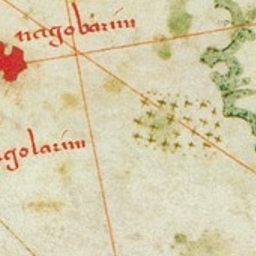 nagobarim
golarim